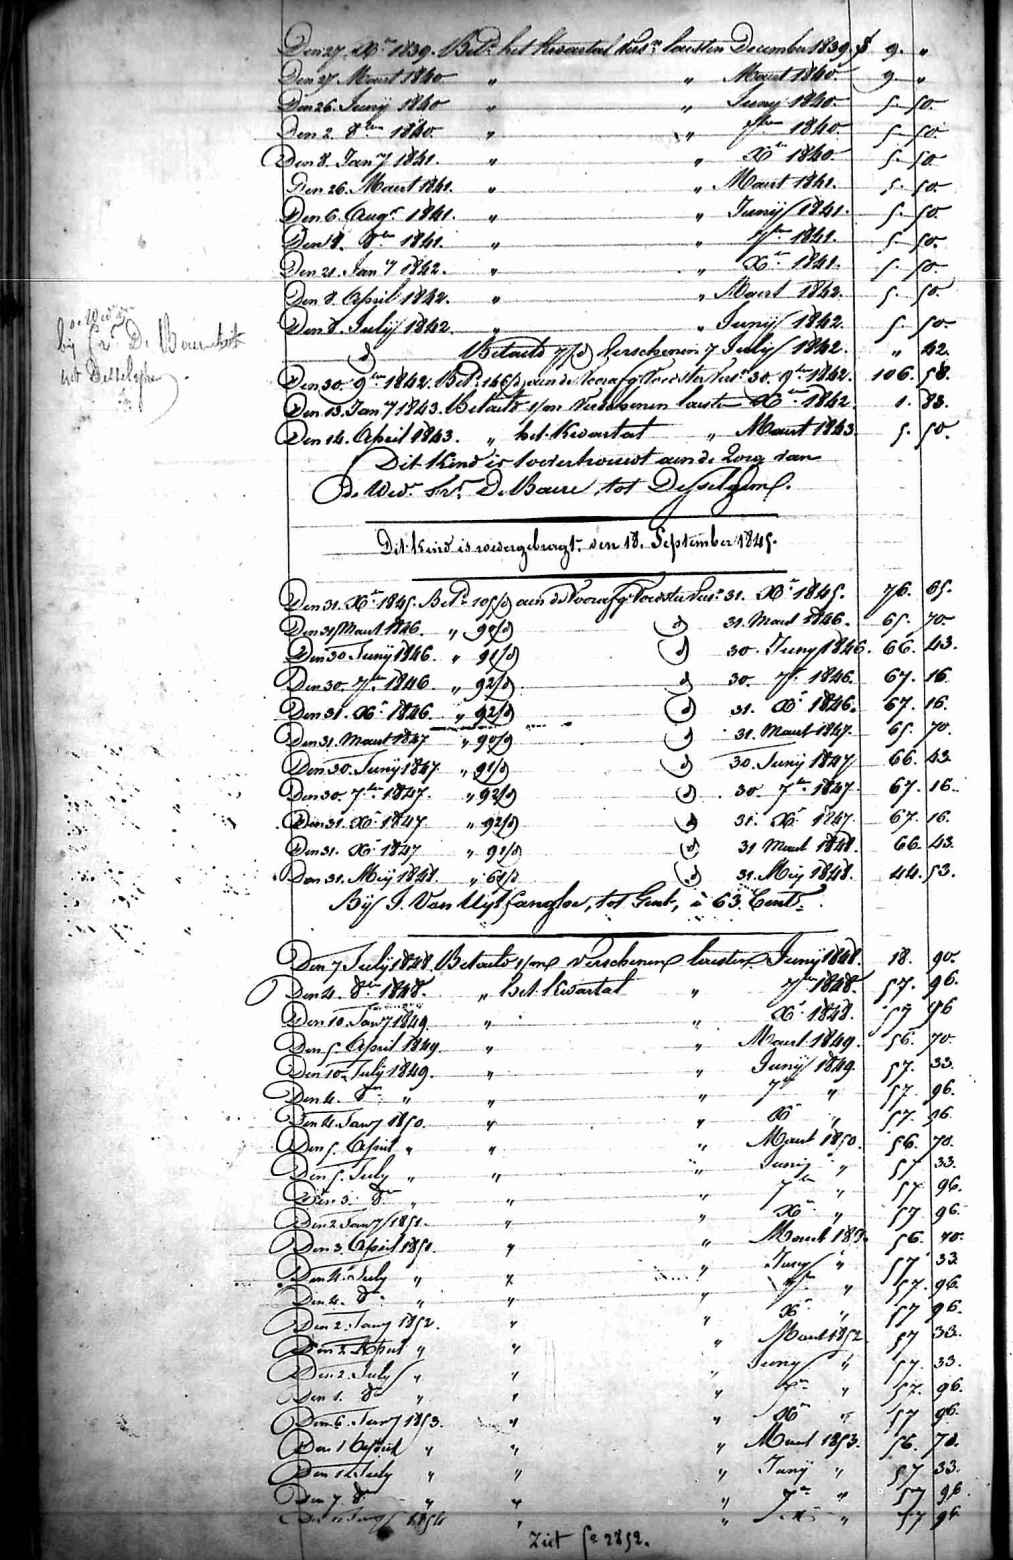 Den 27. Xbr 1839. Bet. het kwartal vers. laesten December 1839. f 9. "
Den 27. Maert 1840 " " Maert 1840 9 "
Den 26. Junij 1840 " " Junij 1840. 5. 50.
Den 2. 8ber 1840 " " 7ber 1840 5. 50.
Den 8. Jany 1841. " " Xber 1840 5. 50
Den 26. Maert 1841. " " Maert 1841. 5. 50.
Den 6. Augt 1841. " " Junij 1841. 5. 50.
Den 8. 8ber 1841. " " 7ber 1841. 5. 50.
Den 21. Jany 1842. " " Xber 1841. 5. 50.
Den 8. April 1842. " " Maert 1842. 5. 50.
Den 8. Julij 1842. " " Junij 1842. 5. 50.
de Wed.
bij Fr. De Baere
tot Desselghem
d Betaeld 7/d Verschenen 7 Julij 1842. " 42.
Den 30. 9ber 1842. Bet. 146/d aen de Voorafg. Voedster vers. 30. 9ber 1842. 106. 58.
Den 13. Jany 1843. Betaeld 1/m Verschenen laesten Xber 1842. 1. 83.
Den 14. April 1843. " het Kwartal " Maert 1843. 5. 50.
Dit kind is toevertrouwt aen de Zorg van
de Wed. Fr. De Baere tot Desselghem.
Dit Kind is wedergebragt den 18. September 1845.
Den 31. Xbr 1845. Bet. 105/d aen de Voorafg. Voedster vers. 31. Xbr 1845. 76. 65.
Den 31 Maert 1846. " 90/d d 31. Maert 1846. 65. 70.
Den 30 Junij 1846. " 91/d d 30. Junij 1846. 66. 43.
Den 30. 7br 1846 " 92/d d 30. 7br 1846. 67. 16.
Den 31. Xbr 1846 " 92/d d 31. Xbr 1846. 67. 16.
Den 31. Maert 1847 " 90/d d 31. Maert 1847. 65. 70.
Den 30. Junij 1847 " 91/d d 30. Junij 1847 66. 43
Den 30. 7ber 1847. " 92/d d 30. 7ber 1847. 67. 16.
Den 31. Xbr 1847 " 92/d d 31. Xbr 1847. 67. 16.
Den 31. Xbr 1847 " 91/d d 31 Maert 1848. 66. 43.
Den 31. Meij 1848. " 61/d d 31. Meij 1848. 44. 53.
Bij J. Van Uijtfanghe, tot Gent, à 63 Cents.
Den 7 Julij 1848 Betaeld 1/m Verschenen laesten Junij 1848. 18. 90.
Den 4. 8ber 1848. " het Kwartal " 7ber 1848. 57. 96.
Den 10 Jany 1849. " " Xbr 1848. 57 96
Den 5 April 1849. " " Maert 1849. 56. 70.
Den 10 Julij 1849. " " Junij 1849. 57. 33.
Den 4. 8ber " " " 7ber " 57. 96.
Den 4 Jany 1850. " " Xber " 57. 96.
Den 5. April " " " Maert 1850. 56. 70.
Den 5. July " " " Junij " 57 33.
Den 3. 8ber " " " 7ber " 57 96.
Den 2 Jany 1851. " " Xber " 57 96.
Den 3. April 1851. " " Maert 185 56. 70.
Den 4. July " " " Juny " 57 33
Den 4. 8br " " " 7ber " 57. 96.
Den 2. Jany 1852. " " Xbr " 57 96.
Den 2. April " " " Maert 1852 57 33.
Den 2. July " " " Juny " 57. 33.
Den 1. 8ber " " " 7ber " 57. 96.
Den 6. Jany 1853. " " Xber " 57 96.
Den 1 April " " " Maert 1853. 56. 70.
Den 12 July " " " Junij " 57 33.
Den 7. 8br " " " 7ber " 57 96.
Den Jany 1854 " " Xbr " 57 96
Ziet f° 2852.